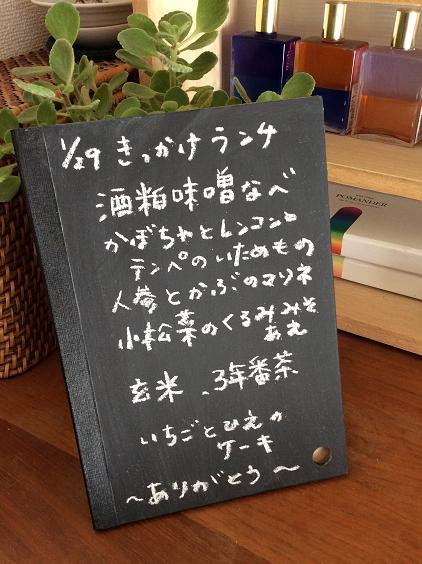 1/29 きっかけランチ
酒粕味噌なべ
かぼちゃとレンコンと
テンペのいためもの
人参とかぶのマリネ
小松菜のくるみみそ
あえ
玄米、3年番茶
いちごとひえの
ケーキ
~ありがとう~
POMANDER